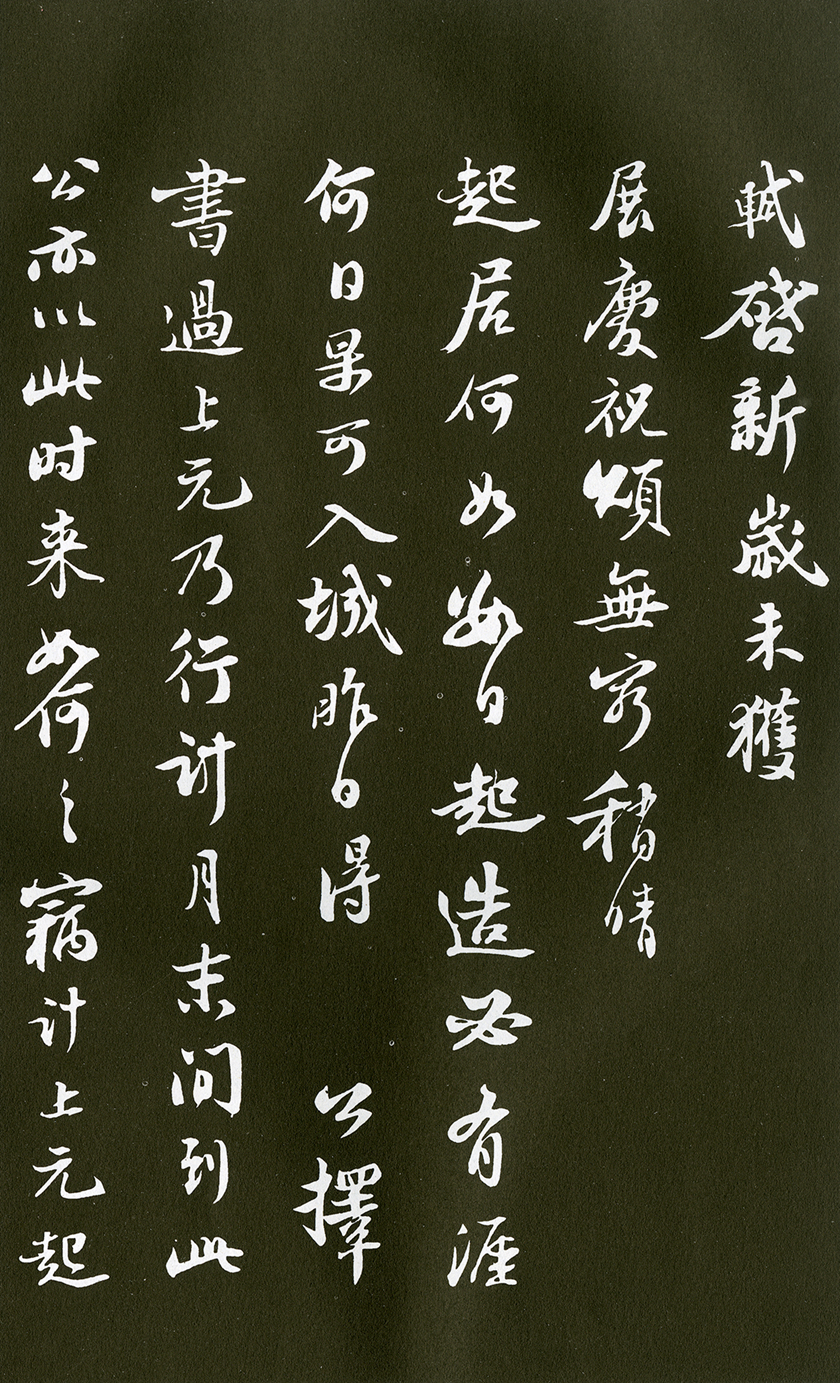 軾啓新歲未獲
展慶祝頌無窮稍晴
起居何如數日起造必有涯
何日果可入城昨日得公擇
書過上元乃行計月末間到此
公亦以此时来如何〻竊計上元起